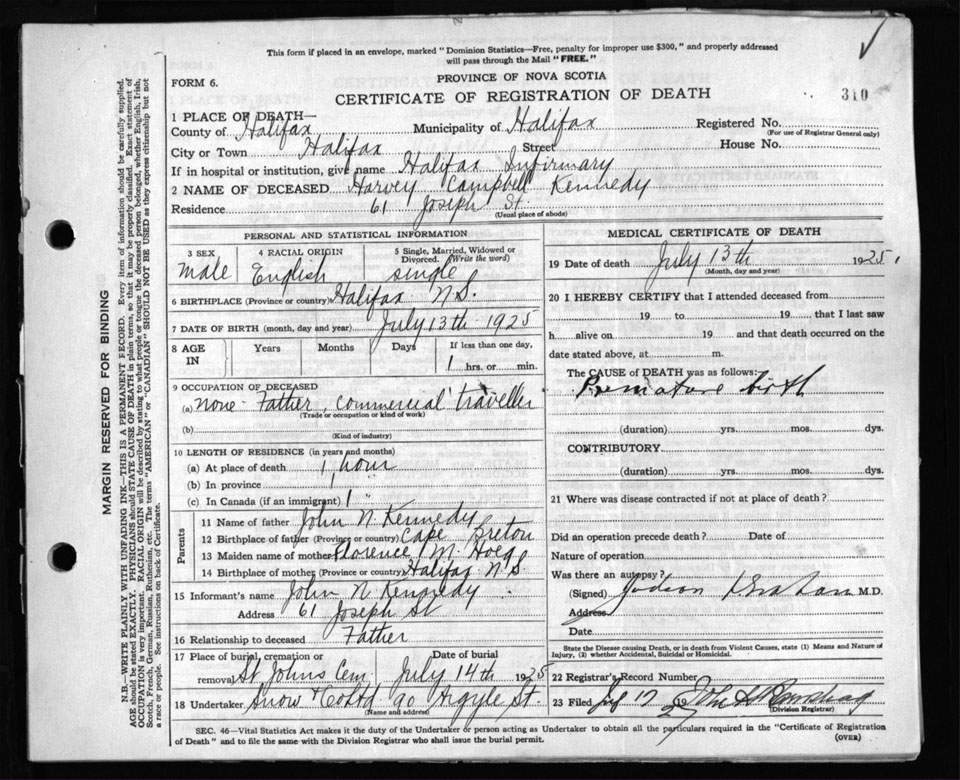 This form if placed in an envelope, marked "Dominion Statistics—Free, penalty for improper use $300," and properly addressed
will pass through the Mail "FREE."
FORM 6.
PROVINCE OF NOVA SCOTIA
CERTIFICATE OF REGISTRATION OF DEATH
310
1 PLACE OF DEATH—
County of Halifax Municipality of Halifax Registered No.
(For use of Registrar General only)
City or Town Halifax Street House No.
If in hospital or institution, give name Halifax Infirmary
2 NAME OF DECEASED Harvey Campbell Kennedy
Residence 61 Joseph St.
(Usual place of abode)
PERSONAL AND STATISTICAL INFORMATION
3 SEX
male
4 RACIAL ORIGIN
English
5 Single, Married, Widowed or
Divorced. (Write the word)
single
6 BIRTHPLACE (Province or country) Halifax N.S.
7 DATE OF BIRTH (month, day and year) July 13th 1925
8 AGE
IN
Years
Months
Days
If less than one day,
1 hrs. or min.
9 OCCUPATION OF DECEASED
(a) none - Father, commercial traveller
(Trade or occupation or kind of work)
(b)
(Kind of industry)
10 LENGTH OF RESIDENCE (in years and months)
(a) At place of death 1 hour
(b) In province 1 "
(c) In Canada (if an immigrant) 1 "
Parents
11 Name of father John N. Kennedy
12 Birthplace of father (Province or country) Cape Breton
13 Maiden name of mother Florence M. Hoeg
14 Birthplace of mother (Province or country) Halifax N.S.
15 Informant's name John N. Kennedy
Address 61 Joseph St
16 Relationship to deceased Father
17 Place of burial, cremation or
removal St Johns Cem
Date of burial
July 14th 1925
18 Undertaker Snow & Co Ltd 90 Argyle St.
(Name and address)
MEDICAL CERTIFICATE OF DEATH
19 Date of death July 13th 1925.
(Month, day and year)
20 I HEREBY CERTIFY that I attended deceased from
19 to 19 that I last saw
h alive on 19 and that death occurred on the
date stated above, at m.
The CAUSE of DEATH was as follows:
Premature birth
(duration) yrs. mos. dys.
CONTRIBUTORY
(duration) yrs. mos. dys.
21 Where was disease contracted if not at place of death?
Did an operation precede death? Date of
Nature of operation
Was there an autopsy?
(Signed) Judson Graham M.D.
Address
Date
State the Disease causing Death, or in death from Violent Causes, state (1) Means and Nature of
Injury, (2) whether Accidental, Suicidal or Homicidal.
22 Registrar's Record Number
23 Filed 17 19 27
(Division Registrar)
SEC. 46—Vital Statistics Act makes it the duty of the Undertaker or person acting as Undertaker to obtain all the particulars required in the "Certificate of Registration
of Death" and to file the same with the Division Registrar who shall issue the burial permit.
(OVER)
MARGIN RESERVED FOR BINDING
N.B.—WRITE PLAINLY WITH UNFADING INK—THIS IS A PERMANENT RECORD. Every item of information should be carefully supplied.
AGE should be stated EXACTLY. PHYSICIANS should STATE CAUSE OF DEATH in plain terms, so that it may be properly classified. Exact statement of
OCCUPATION is very important. RACIAL ORIGIN will be described by stating to what people or tongue the deceased person belonged, whether English, Irish,
Scotch, French, German, Russian, Ruthenian, etc. The terms "AMERICAN" or "CANADIAN" SHOULD NOT BE USED as they express citizenship but not
a race or people. See instructions on back of Certificate.